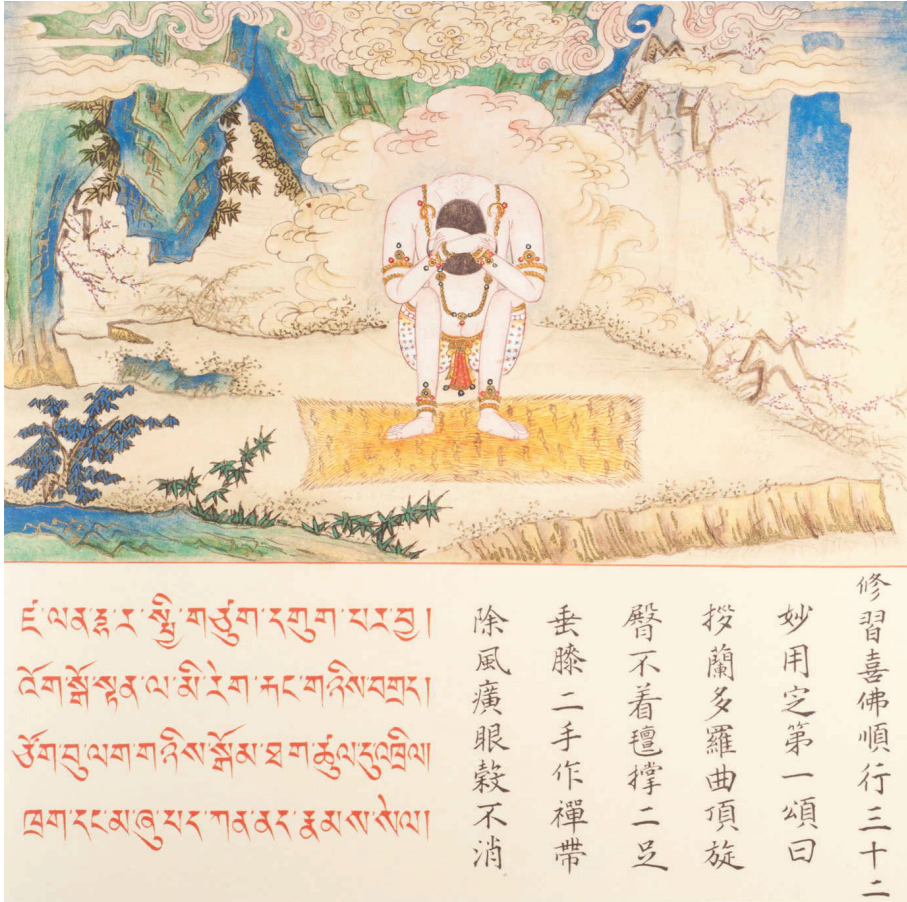 ཛཱ་ལན་དྷ་ར་སྤྱི་གཙུག་དགུག་པར་བྱ །
འོག་སྒོ་སྟན་ལ་མི་རེག་རྐང་གཉིས་བགྲད།
ཙོག་བུ་ལག་གཉིས་སྒོམ་ཐག་ཚུལ་དུ་འཁྲིལ།
ཁྲག་དང་མ་ཞུ་པད་ཀན་ནད་རྣམས་སེལ།
修習喜佛順行三十二
妙用定第一頌曰
拶蘭多羅曲頂旋
臀不着氊撑二足
垂膝二手作禪帶
除風癀眼穀不消